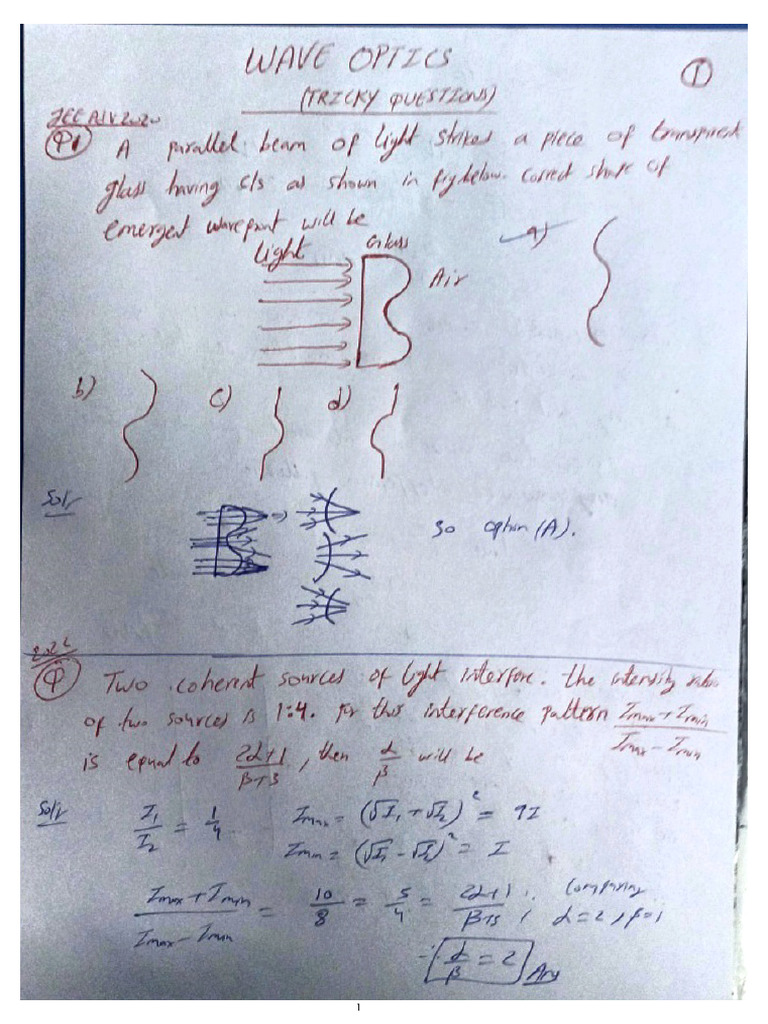 WAVE OPTICS
1
(TRICKY QUESTIONS)
JEE ADV 2020
Q1 A parallel beam of light strikes a piece of transparent
glass having c/s as shown in fig below. Correct shape of
emergent wavefront will be
a)
light Glass
Air
b) c) d)
Soln
so option (A).
Q Two coherent sources of light interfere. the intensity ratio
of two sources is 1:4. for this interference pattern (Imax + Imin)/(Imax - Imin)
is equal to (2α+1)/(β+3), then α/β will be
Soln I₁/I₂ = 1/4 Imax = (√I₁ + √I₂)² = 9I
Imin = (√I₁ - √I₂)² = I
(Imax + Imin)/(Imax - Imin) = 10/8 = 5/4 = (2α+1)/(β+3), Comparing
α=2, β=1
∴ α/β = 2 Ans
1